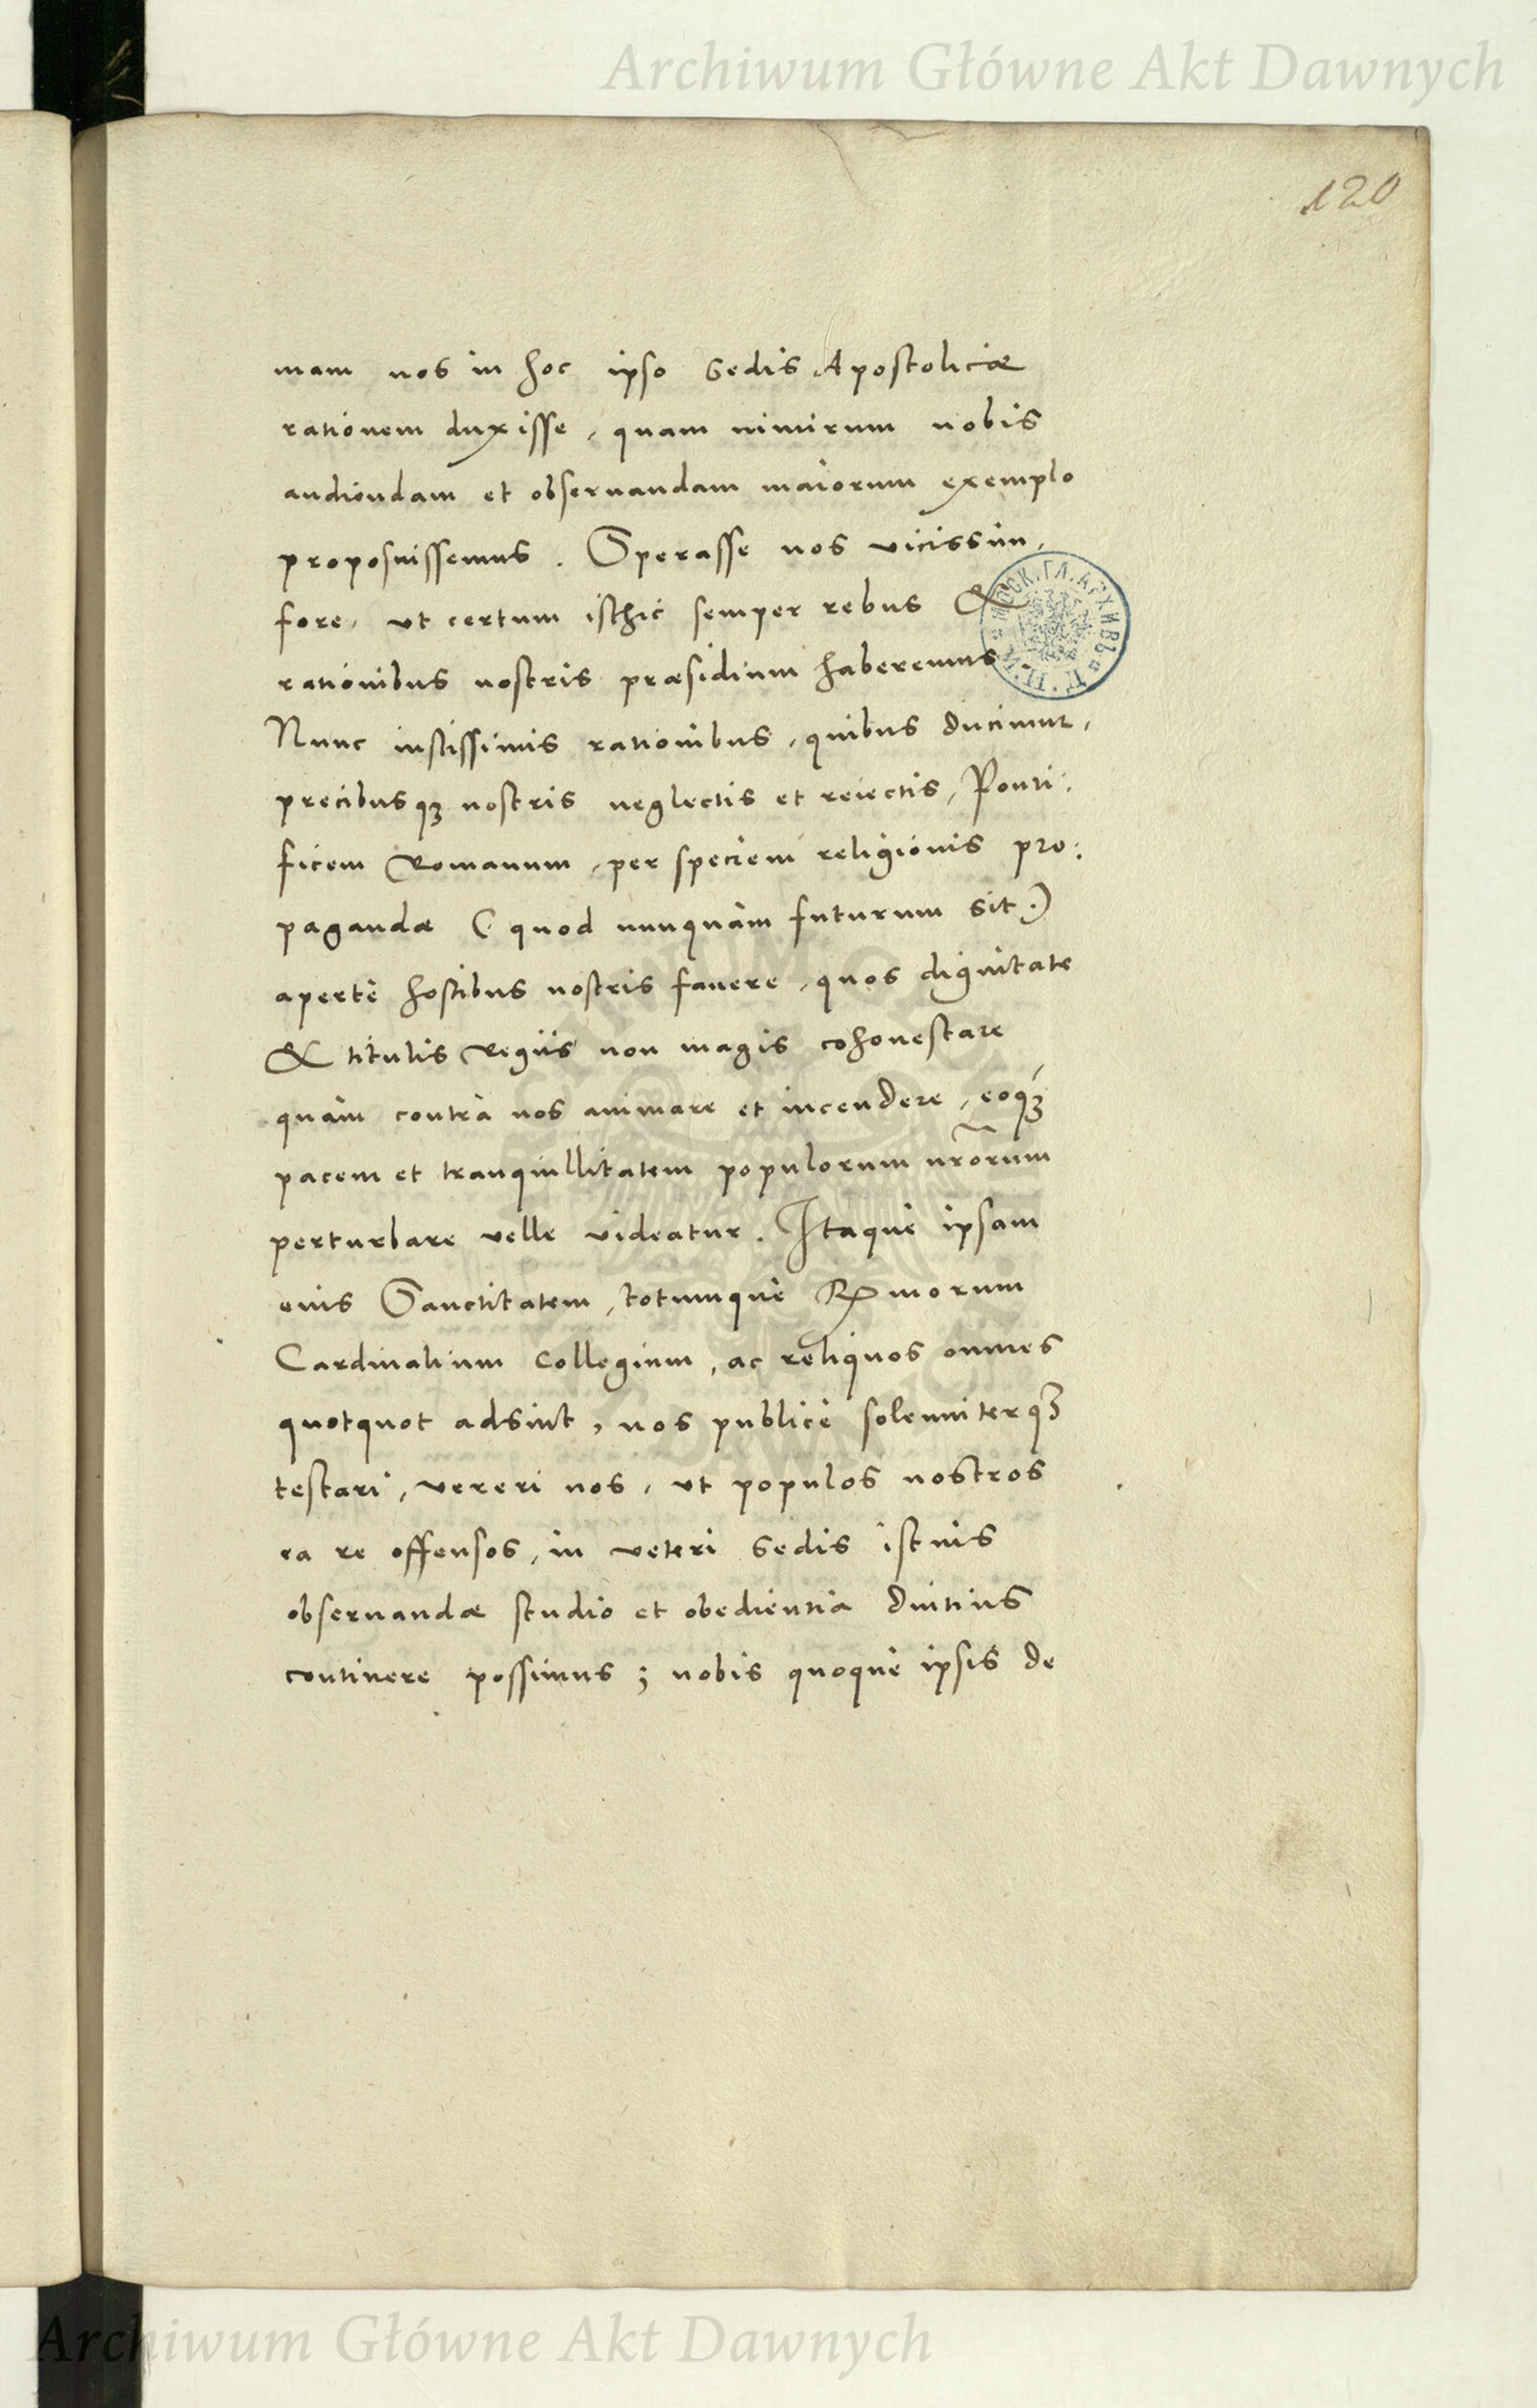 Archiwum Główne Akt Dawnych
120
mam nos in hoc ipso Sedis Apostolicæ
rationem duxisse, quam nimirum nobis
audiendam et obseruandam maiorum exemplo
proposuissemus. Sperasse nos vicissim,
fore, vt certum isthic semper rebus &
rationibus nostris præsidium haberemus
Nunc iustissimis rationibus, quibus ducimur,
precibusqꝫ nostris neglectis et reiectis, Ponti:
ficem Romanum, per speciem religionis pro:
pagandæ (quod nunquàm futurum sit.)
apertè hostibus nostris fauere, quos dignitate
& titulis Regijs non magis cohonestare
quàm contrà nos animare et incendere, eoqꝫ
pacem et tranquillitatem populorum nr̃orum
perturbare velle videatur. Itaquè ipsam
eius Sanctitatem, totumquè Rmorum
Cardinalium Collegium, ac reliquos omnes
quotquot adsint, nos publicè solenniterqꝫ
testari, vereri nos, vt populos nostros
ea re offensos, in veteri Sedis istius
obseruandæ studio et obedientia diutius
continere possimus; nobis quoquè ipsis de
Archiwum Główne Akt Dawnych